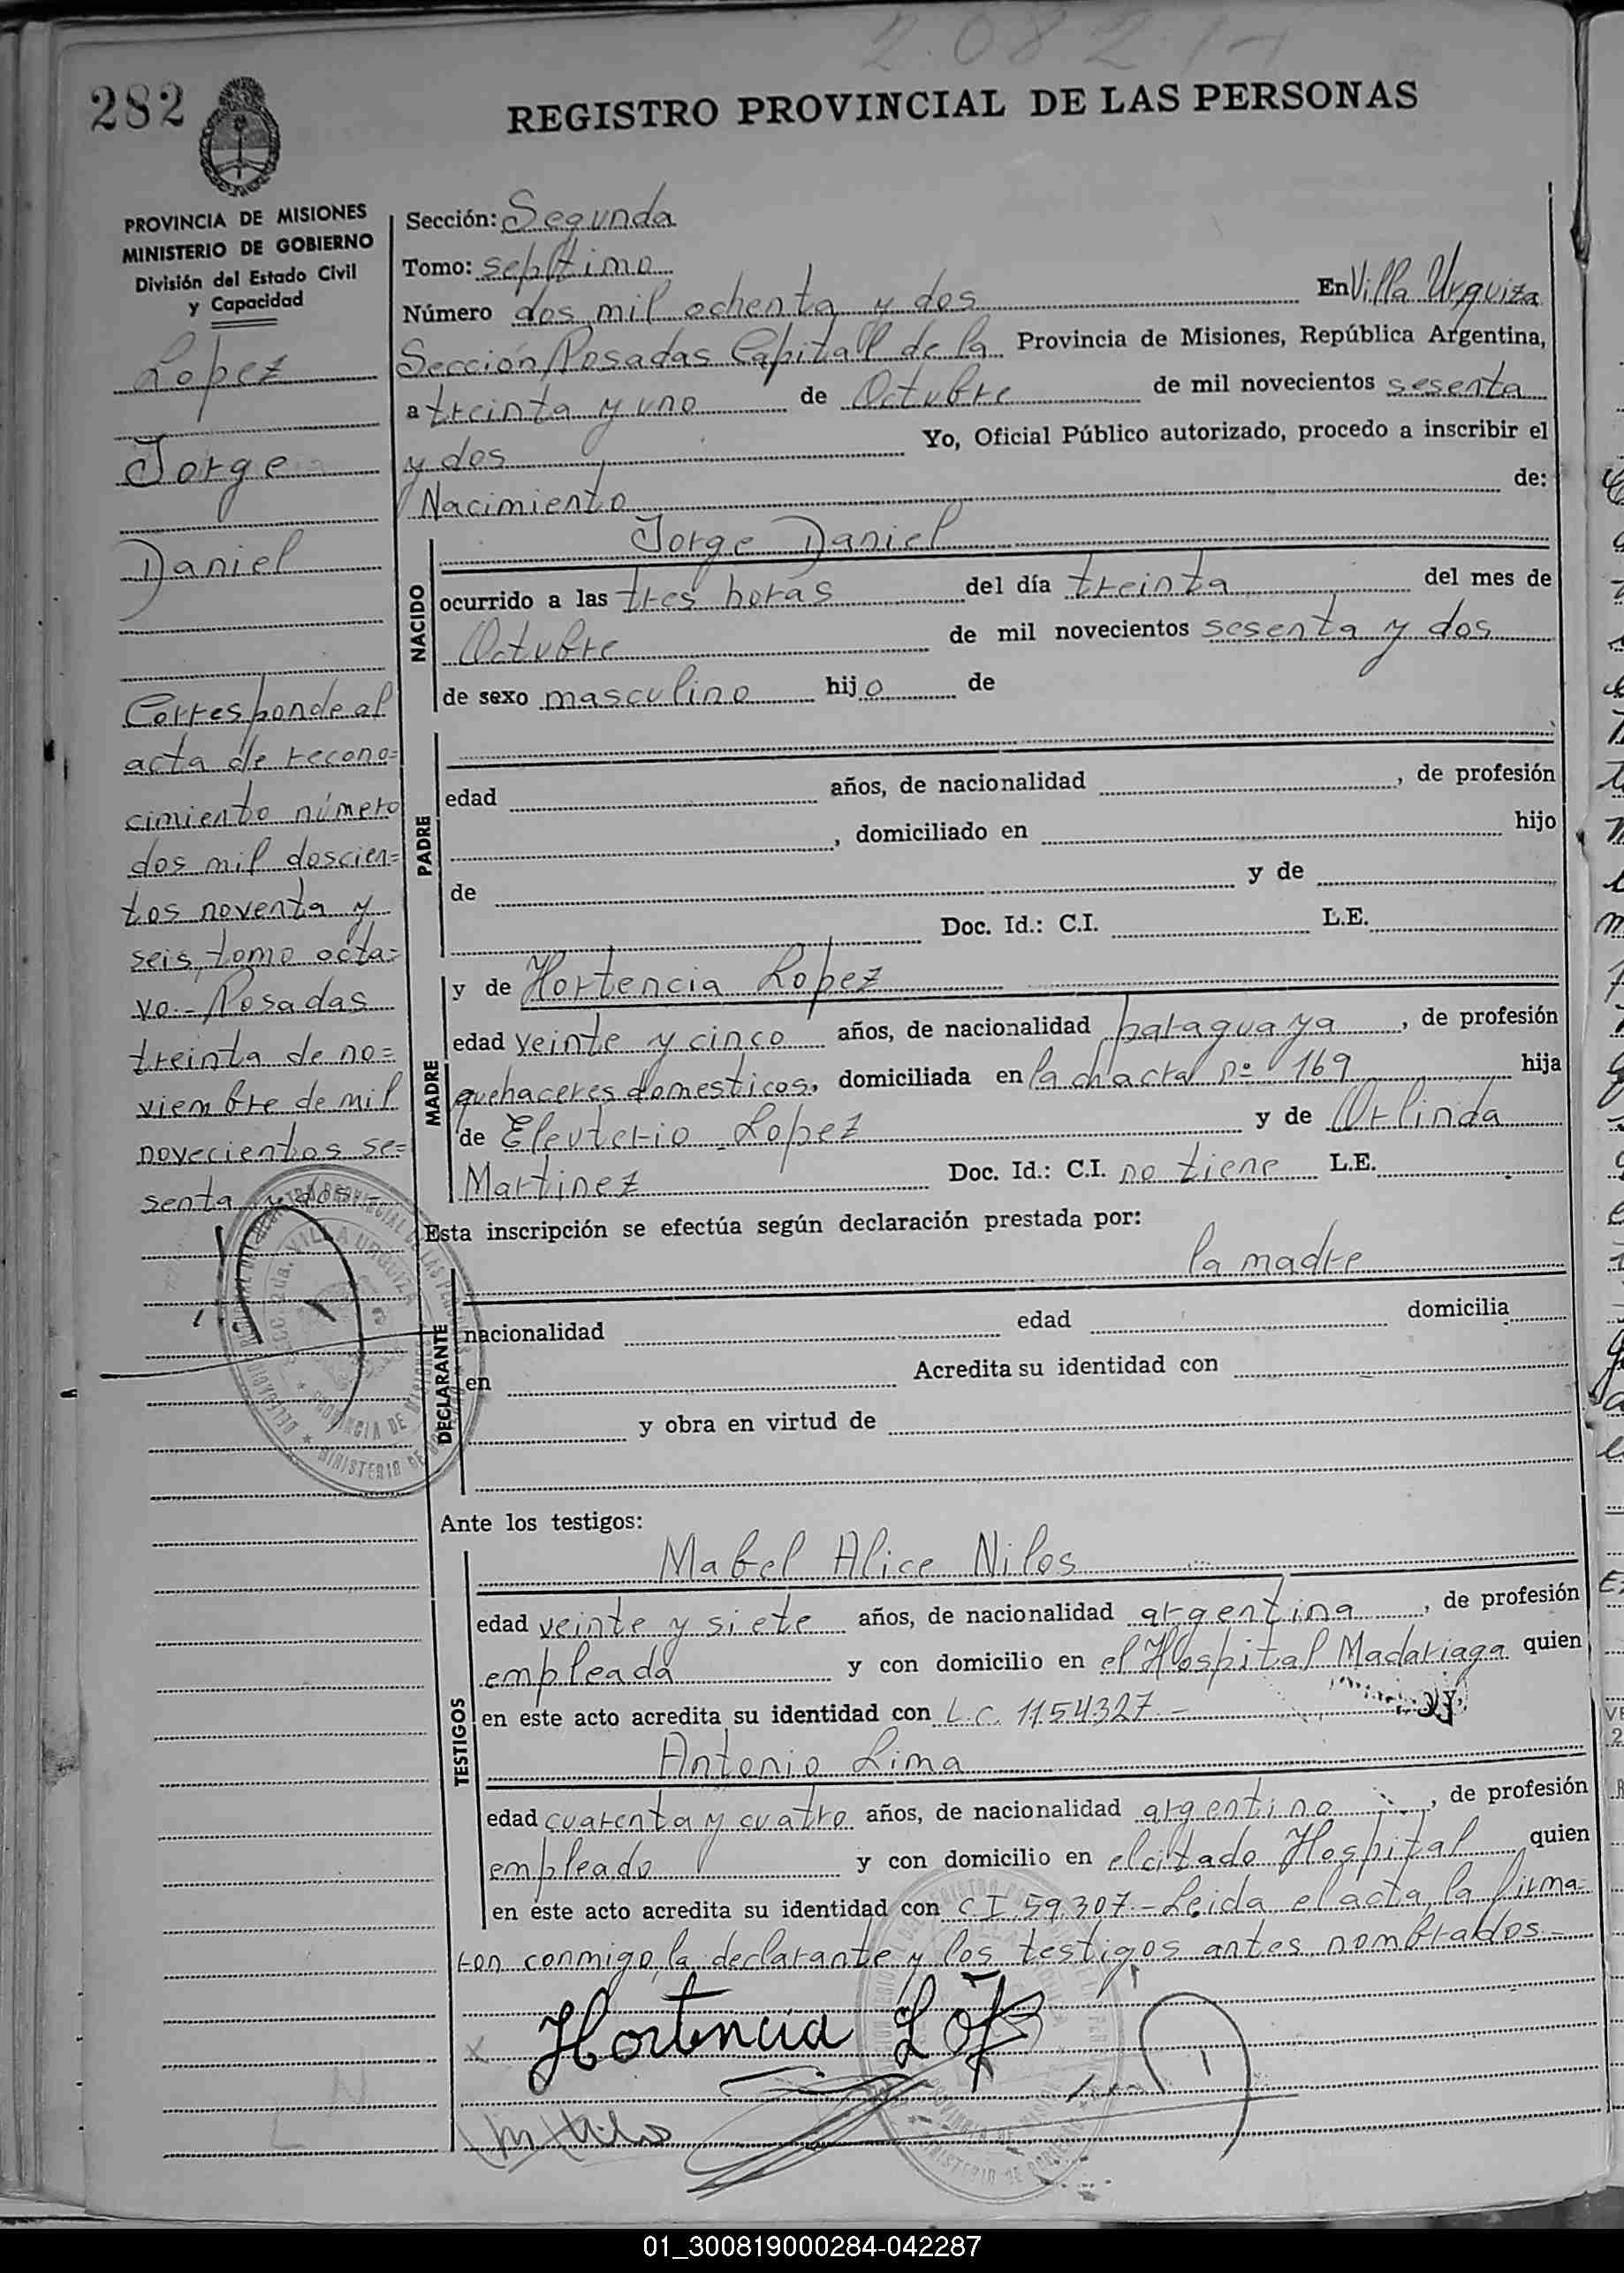 2.082.-
282
REGISTRO PROVINCIAL DE LAS PERSONAS
PROVINCIA DE MISIONES
MINISTERIO DE GOBIERNO
División del Estado Civil
y Capacidad
Lopez
Jorge
Daniel
Corresponde al
acta de recono=
cimiento número
dos mil doscien=
tos noventa y
seis, tomo octa=
vo.- Posadas
treinta de no=
viembre de mil
novecientos se=
senta y dos-
Sección: Segunda
Tomo: septimo
Número dos mil ochenta y dos En Villa Urquiza
Sección, Posadas Capital de la Provincia de Misiones, República Argentina,
a treinta y uno de Octubre de mil novecientos sesenta
y dos Yo, Oficial Público autorizado, procedo a inscribir el
Nacimiento de:
NACIDO
Jorge Daniel
ocurrido a las tres horas del día treinta del mes de
Octubre de mil novecientos sesenta y dos
de sexo masculino hijo de
PADRE
edad años, de nacionalidad , de profesión
, domiciliado en hijo
de y de
Doc. Id.: C.I. L.E.
MADRE
y de Hortencia Lopez
edad veinte y cinco años, de nacionalidad paraguaya , de profesión
quehaceres domesticos, domiciliada en la chacra nº 169 hija
de Eleuterio Lopez y de Orlinda
Martinez Doc. Id.: C.I. no tiene L.E.
Esta inscripción se efectúa según declaración prestada por:
la madre
DECLARANTE
nacionalidad edad domicilia
en Acredita su identidad con
y obra en virtud de
Ante los testigos:
TESTIGOS
Mabel Alice Nilos
edad veinte y siete años, de nacionalidad argentina , de profesión
empleada y con domicilio en el Hospital Madariaga quien
en este acto acredita su identidad con L.C. 1154327.-
Antonio Lima
edad cuarenta y cuatro años, de nacionalidad argentino , de profesión
empleado y con domicilio en el citado Hospital quien
en este acto acredita su identidad con C I 59.307.- Leida el acta, la firma=
ron conmigo, la declarante y los testigos antes nombrados.-
Hortencia López
01_300819000284-042287